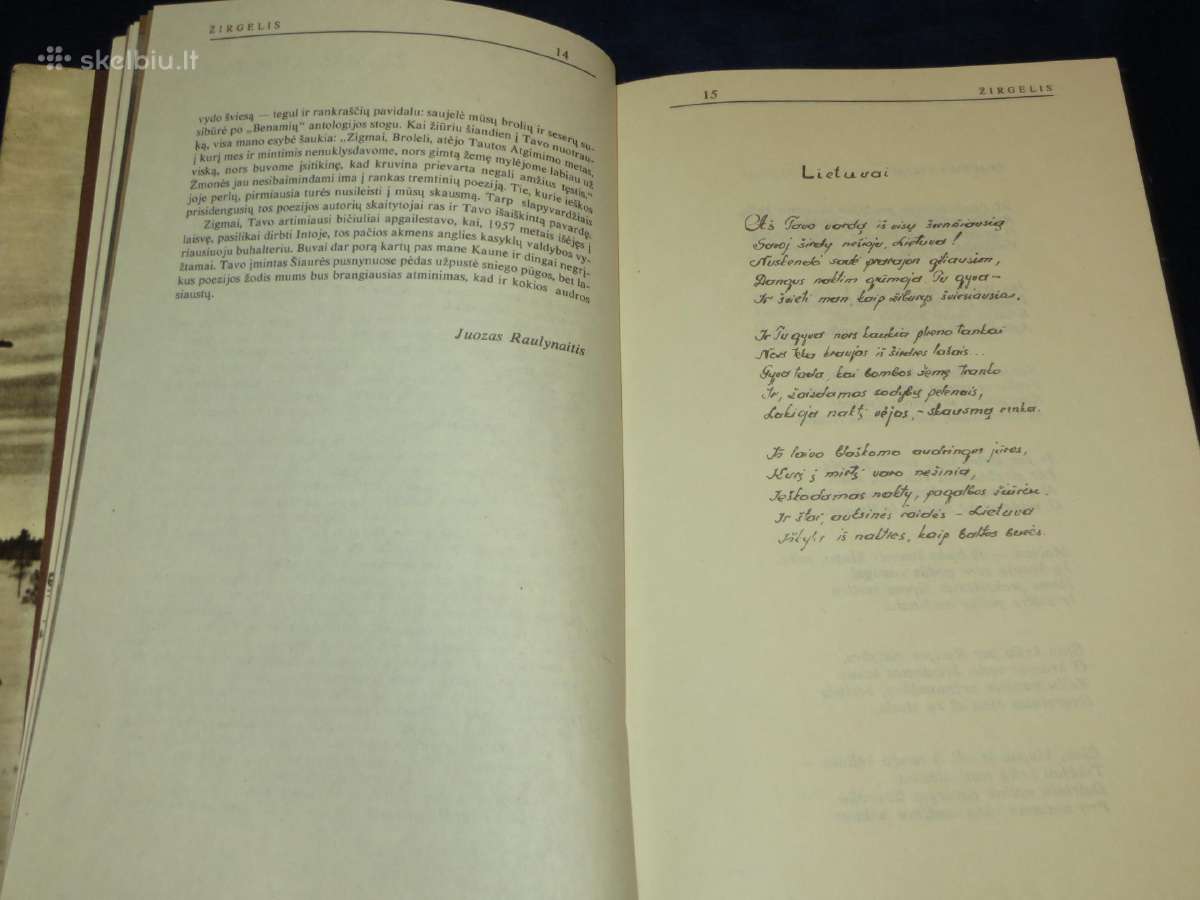 skelbiu.lt
ŽIRGELIS
14
vydo šviesą — tegul ir rankraščių pavidalu: saujelė mūsų brolių ir seserų su-
sibūrė po „Benamių“ antologijos stogu. Kai žiūriu šiandien į Tavo nuotrau-
ką, visa mano esybė šaukia: „Zigmai, Broleli, atėjo Tautos Atgimimo metas,
į kurį mes ir mintimis nenuklysdavome, nors gimtą žemę mylėjome labiau už
viską, nors buvome įsitikinę, kad kruvina prievarta negali amžius tęstis.“
Žmonės jau nesibaimindami ima į rankas tremtinių poeziją. Tie, kurie ieškos
joje perlų, pirmiausia turės nusileisti į mūsų skausmą. Tarp slapyvardžiais
prisidengusių tos poezijos autorių skaitytojai ras ir Tavo išaiškintą pavardę.
Zigmai, Tavo artimiausi bičiuliai apgailestavo, kai, 1957 metais išėjęs į
laisvę, pasilikai dirbti Intoje, tos pačios akmens anglies kasyklų valdybos vy-
riausiuoju buhalteriu. Buvai dar porą kartų pas mane Kaune ir dingai negrį-
žtamai. Tavo įmintas Šiaurės pusnynuose pėdas užpustė sniego pūgos, bet la-
kus poezijos žodis mums bus brangiausias atminimas, kad ir kokios audros
siaustų.
Juozas Raulynaitis
15
ŽIRGELIS
Lietuvai
Aš Tavo vardą iš visų švenčiausią
Savoj širdy nešioju, Lietuva!
Nuskendo saulė prarajon giliausion,
Dangus naktim grūmoja. Tu gyva –
Ir švieti man, kaip žiburys šviesiausias.
Ir Tu gyva nors kaukia plieno tankai
Nors teka kraujas iš širdies lašais...
Gyva tada, kai bombos žemę tranko
Ir, žaisdamas sodybų pelenais,
Lakioja naktį vėjas, – skausmą renka.
Iš laivo blaškomo audringos jūros,
Kurį į mirtį varo nežinia,
Ieškodamas nakty, pagalbos žiūriu.
Ir štai, auksinės raidės – Lietuva
Iškyla iš nakties, kaip baltos burės.